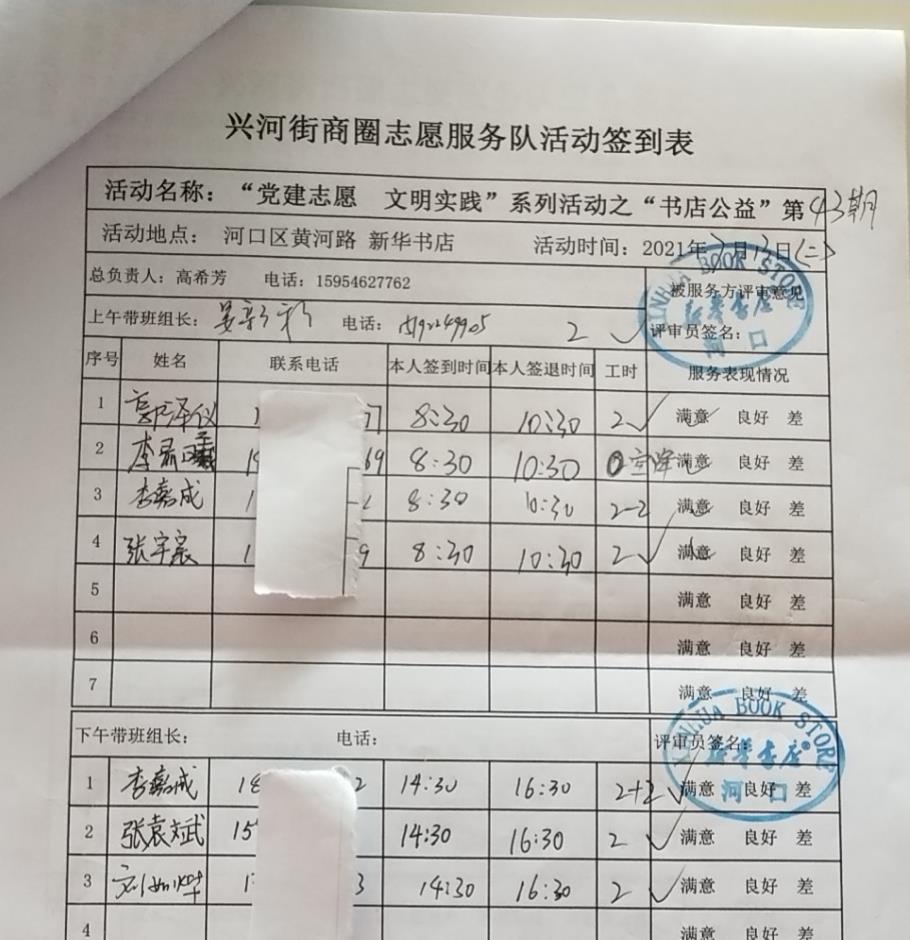 兴河街商圈志愿服务队活动签到表
活动名称：“党建志愿 文明实践”系列活动之“书店公益”第43期
活动地点： 河口区黄河路 新华书店 活动时间：2021年7月13日(二)
总负责人：高希芳 电话：15954627762 被服务方评审意见
上午带班组长： 电话： 2 评审员签名：
XINHUA BOOK STORE
新华书店
河口
序号 姓名 联系电话 本人签到时间 本人签退时间 工时 服务表现情况
1 郭泽仪 1 7 8:30 10:30 2 满意 良好 差
2 李 1 69 8:30 10:30 0 满意 良好 差
3 李嘉成 1 2 8:30 10:30 2-2 满意 良好 差
4 张宇宸 1 9 8:30 10:30 2 满意 良好 差
5 满意 良好 差
6 满意 良好 差
7 满意 良好 差
下午带班组长： 电话： 评审员签名：
XINHUA BOOK STORE
新华书店
河口
1 李嘉成 18 2 14:30 16:30 2+2 满意 良好 差
2 张袁斌武 15 14:30 16:30 2 满意 良好 差
3 刘如烨 1 3 14:30 16:30 2 满意 良好 差
4 满意 良好 差